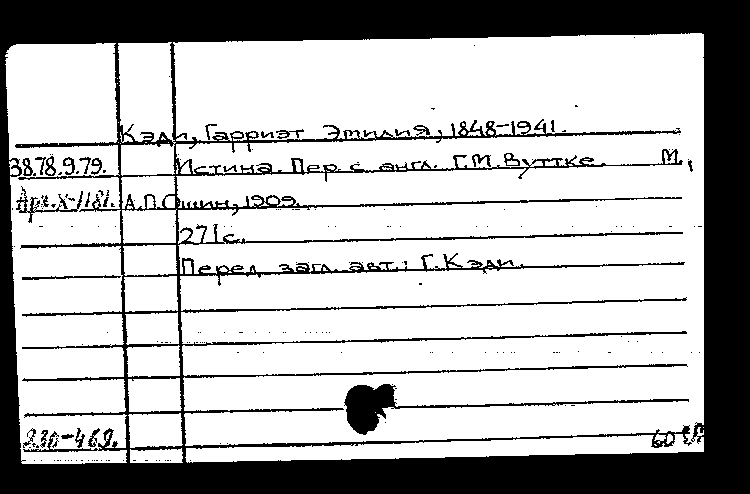 Кэди, Гарриэт Эмилия, 1848-1941.
38.78.9.79. Истина. Пер. с англ. Г.М. Вуттке. М.,
Арх.X-1181. А.П.Ошин, 1909.
271с.
Перед загл. авт.: Г.Кэди.
230-469.
60